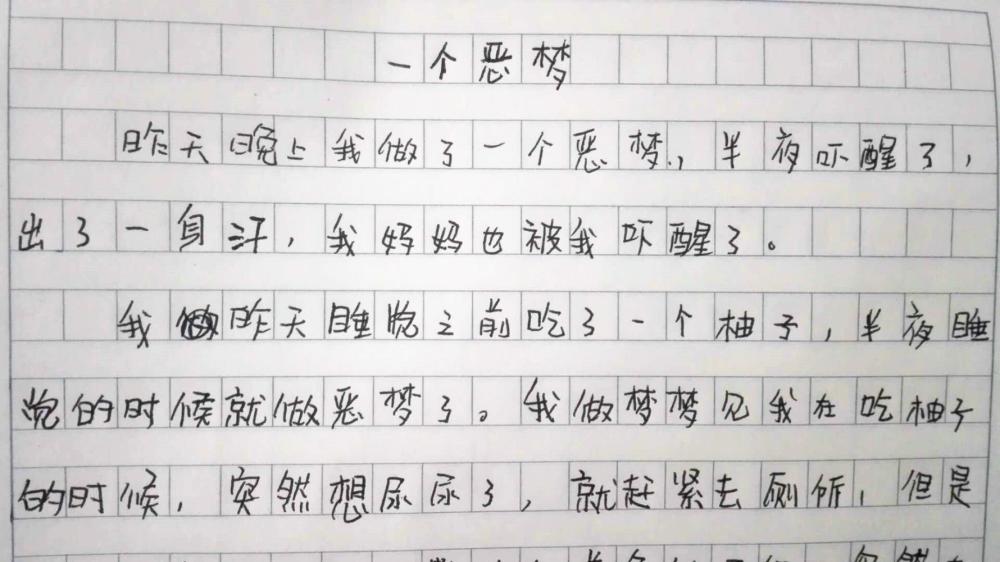 一个恶梦
昨天晚上我做了一个恶梦，半夜吓醒了，
出了一身汗，我妈妈也被我吓醒了。
我昨天睡觉之前吃了一个柚子，半夜睡
觉的时候就做恶梦了。我做梦梦见我在吃柚子
的时候，突然想尿尿了，就赶紧去厕所，但是